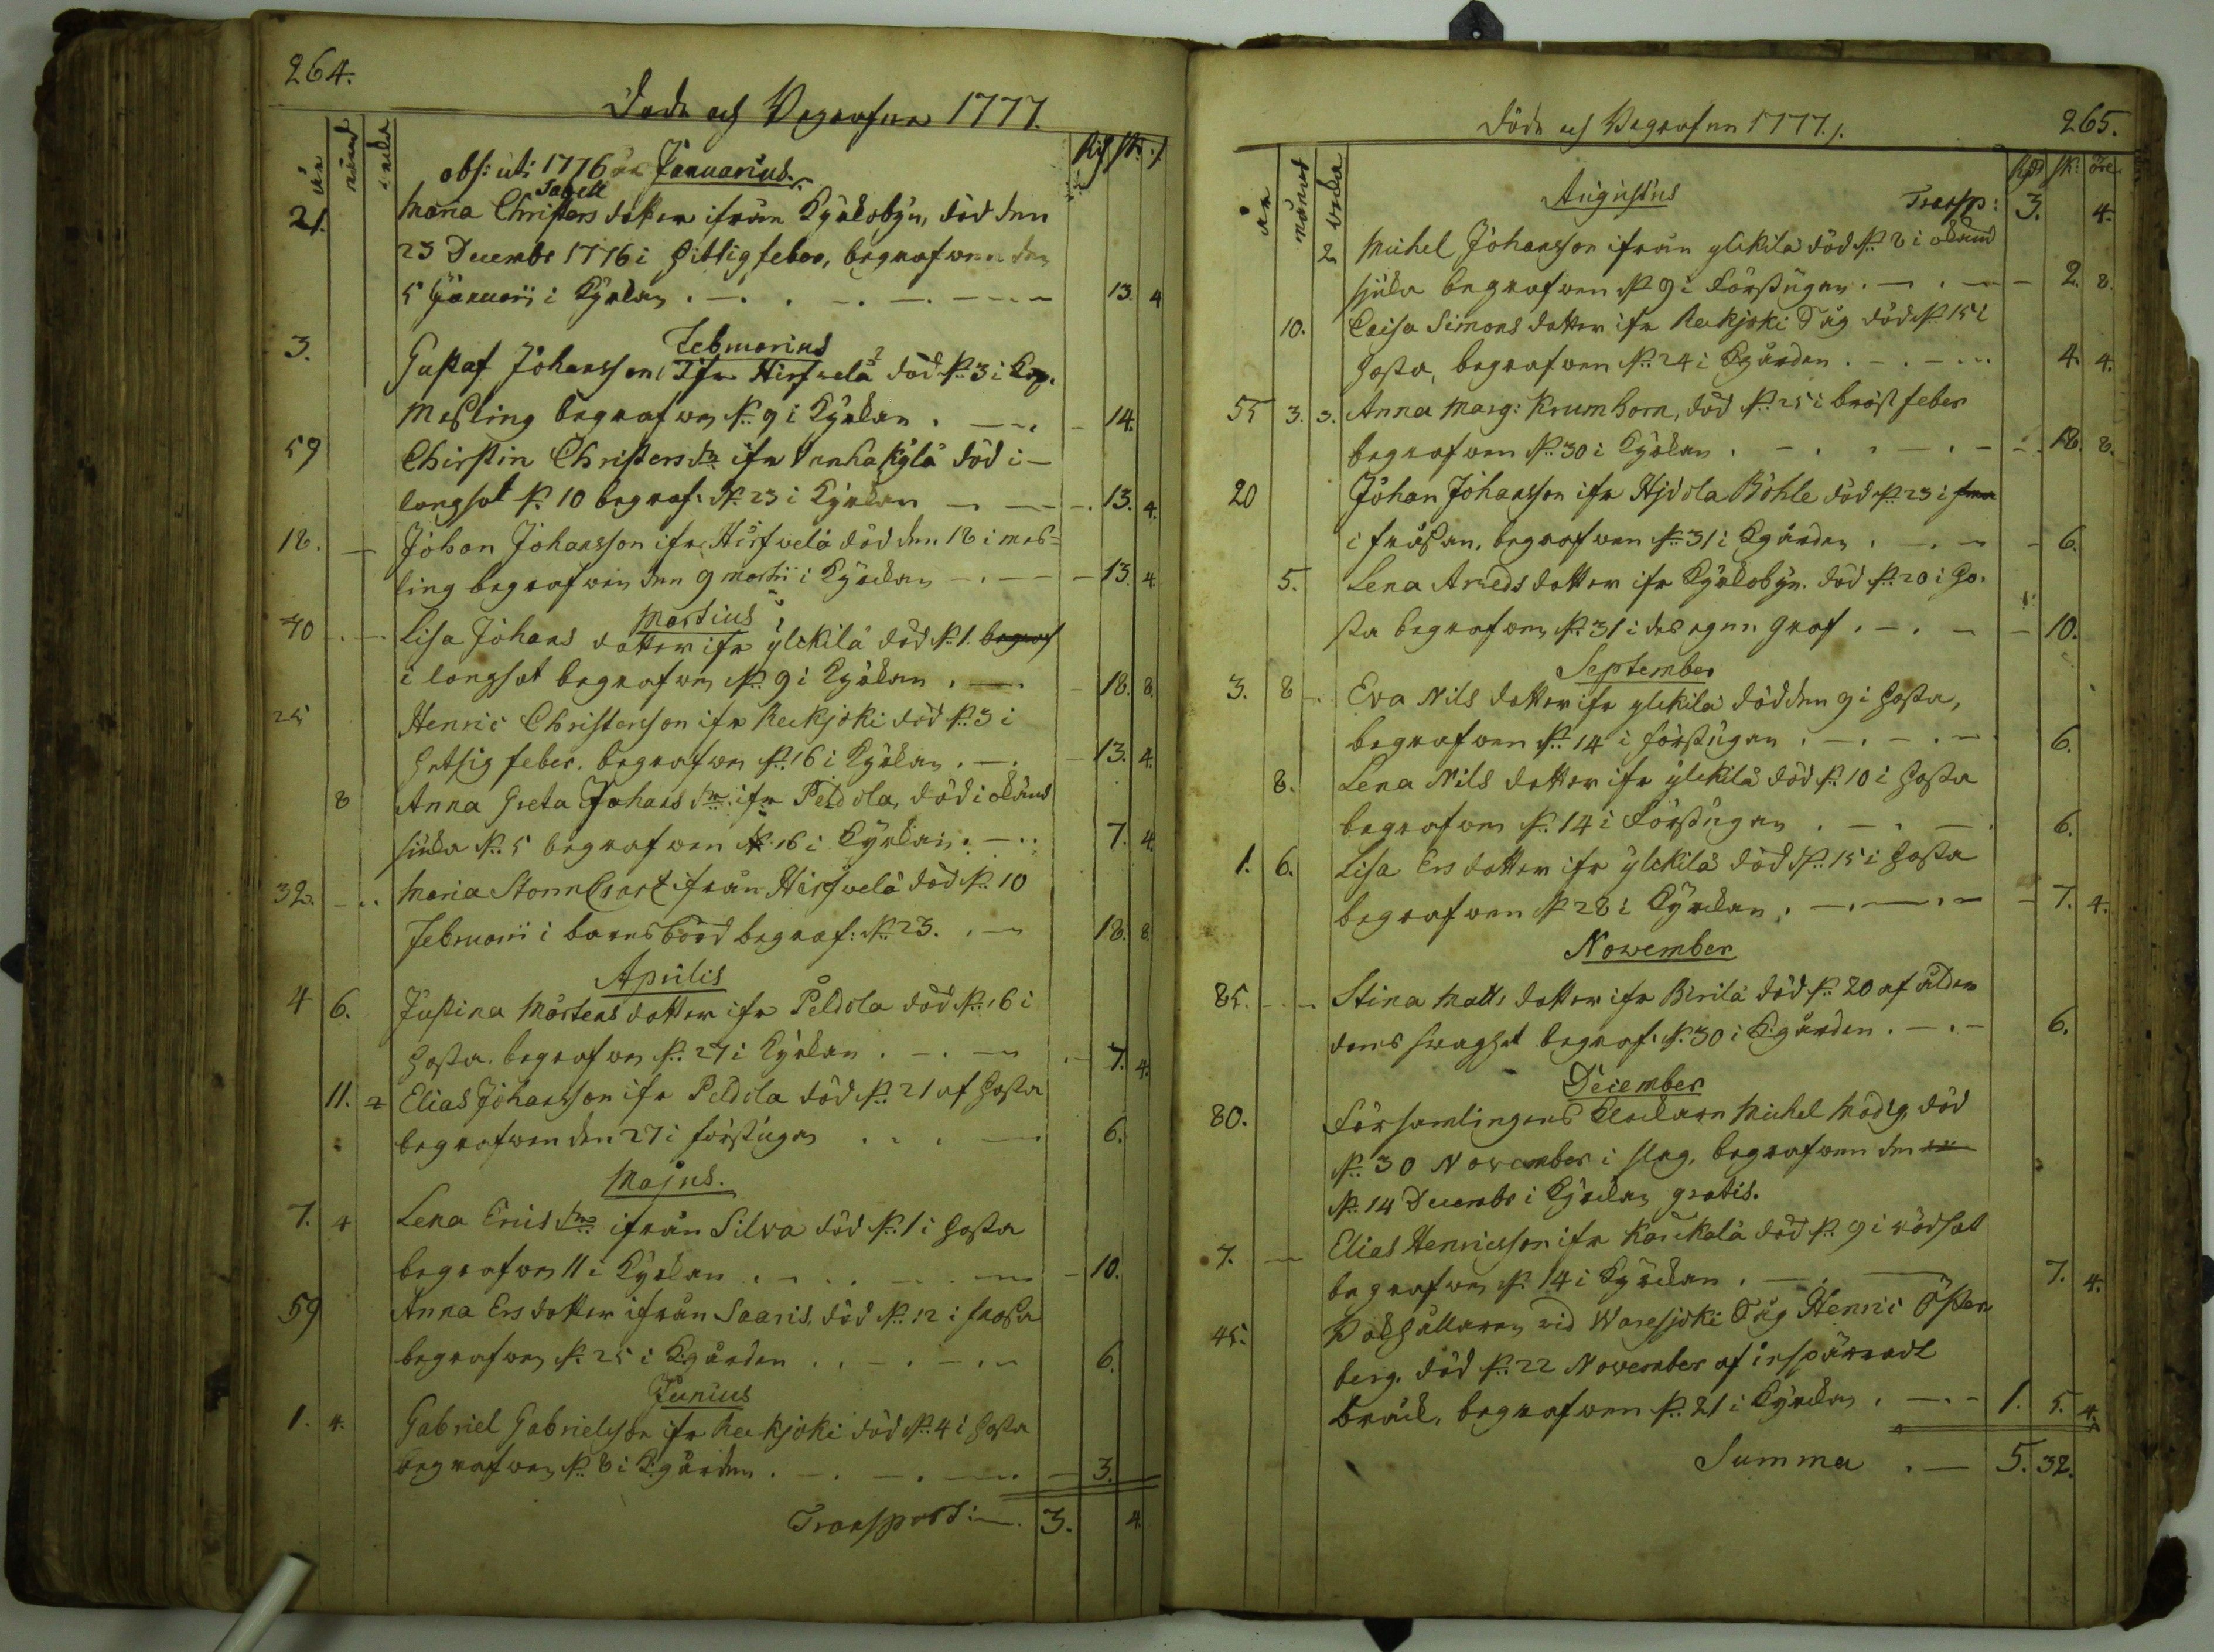 264.
Döde och Begrafne 1777.
år månad weka
Rd sk: /
obs: uti 1776 års Januarius.
Sagell
21. Maria Christersdotter ifrån Kyrkobyn, död den
23 Decembr 1776 i hitsig feber, begrafwen den
5 Januarii i Kyrkan . — . . — . — - - - 13. 4
Februarius
3. Gustaf Johansson, ifr Hirfvelä död d. 3 i Kop.
Messling begrafwen d. 9 i Kyrkan . — - 14.
59 Chirstin Christersdr ifr Vanhakylä död i -
langsot d. 10 begraf: d. 23 i Kyrkan — — -. 13. 4.
18. — Johan Johansson ifr Hirfvelä död den 18 i mess=
ling begrafwen den 9 martii i Kyrckan — . — - 13. 4.
Martius
40 - . - Lisa Johans dotter ifr ylikila död d. 1. begraf
i langsot begrafwen d. 9 i Kyrkan . — . - 18. 8.
25 Henric Christersson ifr Reckjoki död d. 3 i
hetsig feber. begrafwen d. 16 i Kyrkan . — . - 13. 4.
8 Anna Greta Johans dr. ifr Peldola, död i okänd
siuka d. 5 begrafwen d. 16 i Kyrkan . — . . 7. 4.
32. - . . Maria Stormbrort ifrån Hirfvelä död d. 10
Februarii i barnsbörd begraf: d. 23. . — 18. 8.
Aprilis
4 6. Justina Mårtensdotter ifr Peldola död d. 16 i
hosta. begrafwen d. 27 i Kyrkan . — . — . - 7. 4.
11. 2 Elias Johansson ifr Peldola död d. 21 af hosta
begrafwen den 27 i förstugan . . . — 6.
Majus.
7. 4 Lena Erics dr ifrån Silva död d. 1 i hosta
begrafwen 11 i Kyrkan . — . . — . — - 10.
59 Anna Ersdotter ifrån Saaris, död d. 12 i frossa
begrafwen d. 25 i K:gården . . — . — . — 6.
Junius
1. 4. Gabriel Gabrielsson ifr Reckjoki död d. 4 i hosta
begrafwen d. 8 i K:gården . — . — . — — 3.
Transport: —. 3. 4.
265.
Döde och Begrafne 1777.
år månad weka
Rd sk: öre
Augustus Transp: 3. 4.
2 Michel Johansson ifrån ylikila död d. 8 i okänd
sjuka begrafwen d. 9 i Förstugan . — . — - 2. 8.
10. Caisa Simons dotter ifr Reckjoki Såg död d. 15 i
hosta, begrafwen d. 24 i K:gården . — . — . . 4. 4.
55 3. 3. Anna Marg: Krumhorn, död d. 25 i bröstfeber
begrafwen d. 30 i Kyrkan . — . . — . — -. 18. 8.
20 Johan Johansson ifr Hjdola Böhle död d. 23 i
i frossan, begrafwen d. 31 i K:gården . — . — - 6.
5. Lena Arveds dotter ifr Kyrkobyn. död d. 20 i ho-
sta begrafwen d. 31 i des egen graf . — . — - 10.
September
3. 8 - Eva Nils dotter ifr ylikila död den 9 i hosta,
begrafwen d. 14 i förstugan . — . — . — . 6.
8. Lena Nils dotter ifr ylikila död d. 10 i hosta
begrafwen d. 14 i Förstugan . — . — . 6.
1. 6. Lisa Ers dotter ifr ylikila död d. 15 i hosta
begrafwen d. 28 i Kyrckan . — . — . — - 7. 4.
November
85. - . - Stina Matts dotter ifr Birila död d. 20 af ålder
doms swaghet begraf: d. 30 i K:gården . — . — 6.
December
80. Församlingens Klockare Michel Modeg, död
d. 30 November i slag, begrafwen den
d. 14 Decembr i Kyrckan gratis.
7. — Elias Henricsson ifr Karickala död d. 9 i rödsot
begrafwen d. 14 i Kyrckan . — . — 7. 4.
45. Bokhållaren vid Waresjoki Såg Henric Öster-
berg. död d. 22 November af inspärradt
bråck, begrafwen d. 21 i Kyrckan . — . - 1. 5. 4.
Summa . — 5. 32.